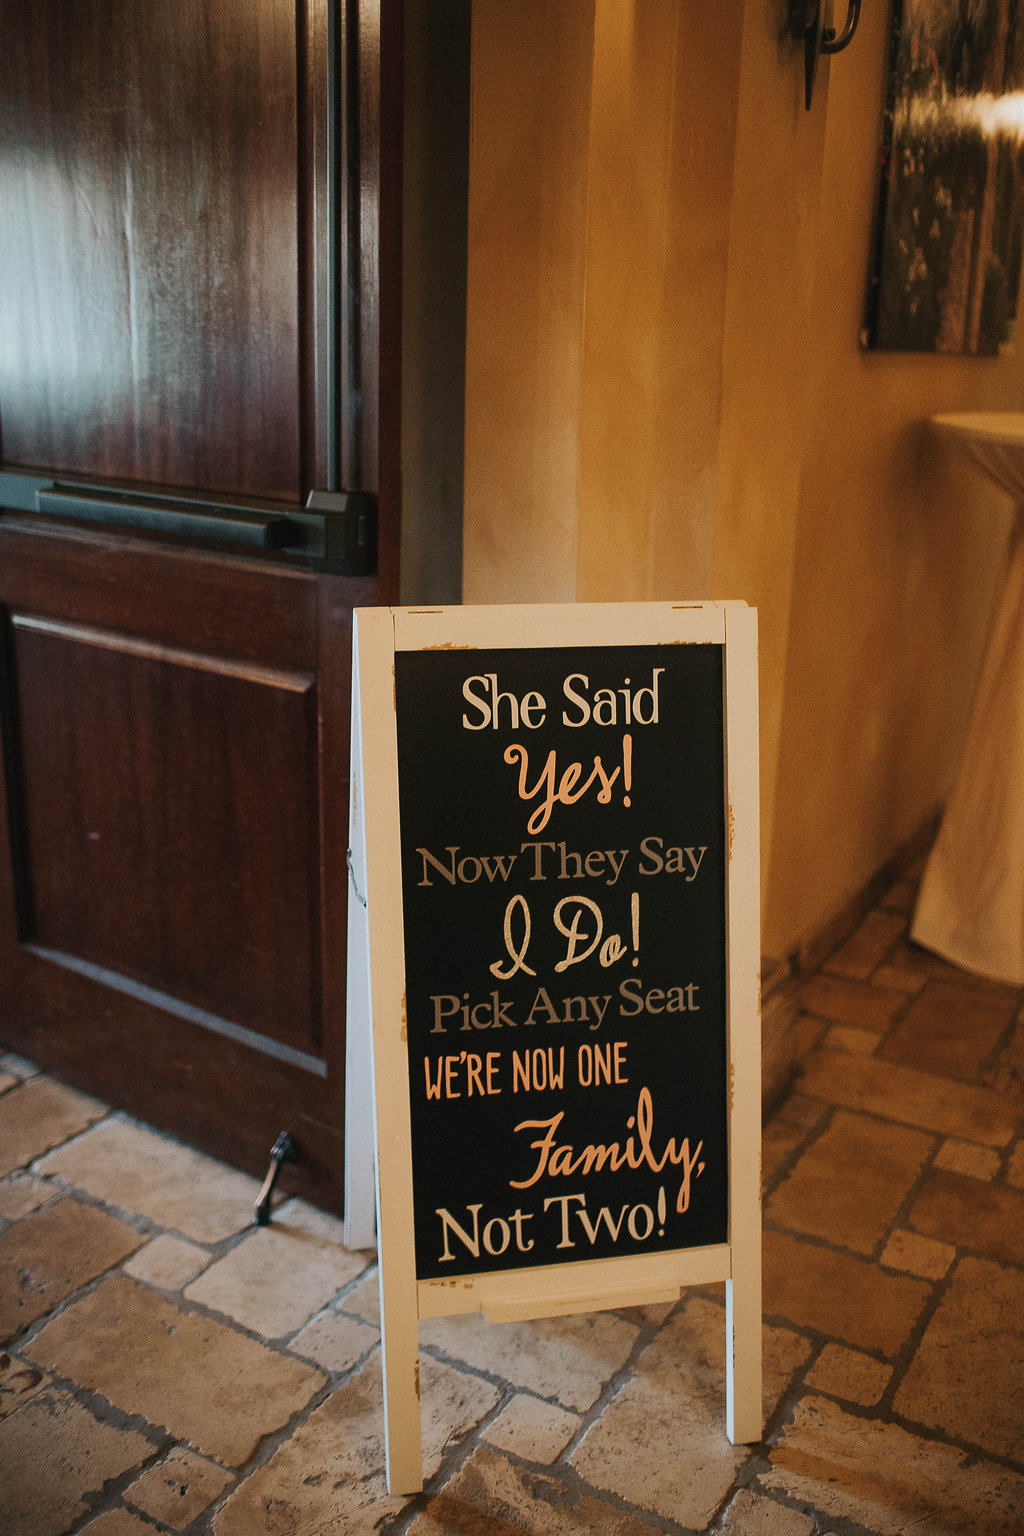 She Said
Yes!
Now They Say
I Do!
Pick Any Seat
WE'RE NOW ONE
Family,
Not Two!